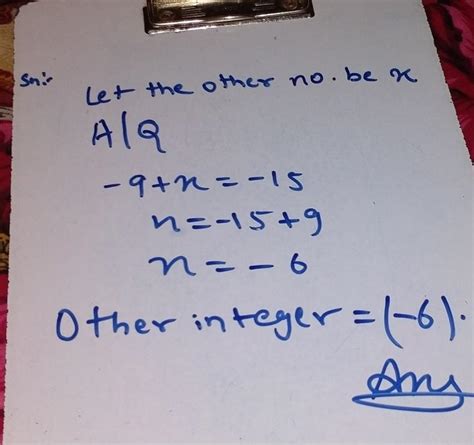 Sn:- Let the other no. be x
A/Q
-9+x=-15
x=-15+9
x=-6
Other integer=(-6).
Ans